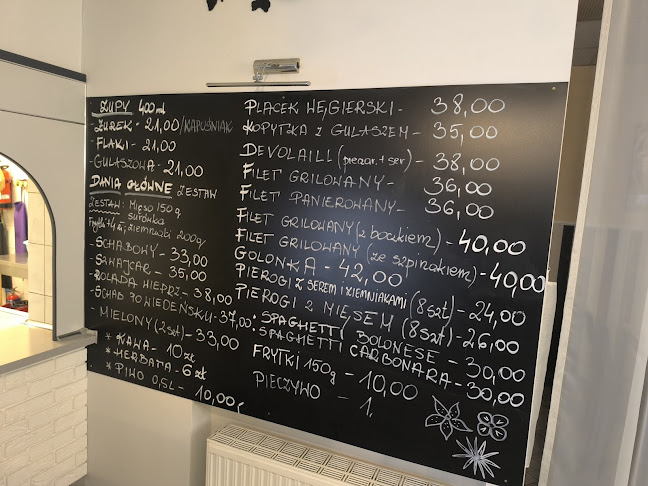 ZUPY 400ml
- ŻUREK - 21,00 /KAPUŚNIAK
- FLAKI - 21,00
- GULASZOWA - 21,00
DANIA GŁÓWNE ZESTAW
ZESTAW: MIĘSO 150g
SURÓWKA
ziemniaki 200g
- SCHABOWY - 33,00
- SZNYCEL - 35,00
- ROLADA WIEPRZ. - 38,00
- SCHAB PO WIEDEŃSKU - 37,00
MIELONY (2szt) - 33,00
* KAWA - 10 zł
* HERBATA - 6 zł
* PIWO 0,5L - 10,00
PLACEK WĘGIERSKI - 38,00
KOPYTKA Z GULASZEM - 35,00
DEVOLAILL (pieczar. + ser) - 38,00
FILET GRILOWANY - 36,00
FILET PANIEROWANY - 36,00
FILET GRILOWANY (z boczkiem) - 40,00
FILET GRILOWANY (ze szpinakiem) - 40,00
GOLONKA - 42,00
PIEROGI Z SEREM I ZIEMNIAKAMI (8szt) - 24,00
PIEROGI Z MIĘSEM (8szt) - 26,00
• SPAGHETTI BOLONESE - 30,00
• SPAGHETTI CARBONARA - 30,00
FRYTKI 150g - 10,00
PIECZYWO - 1.